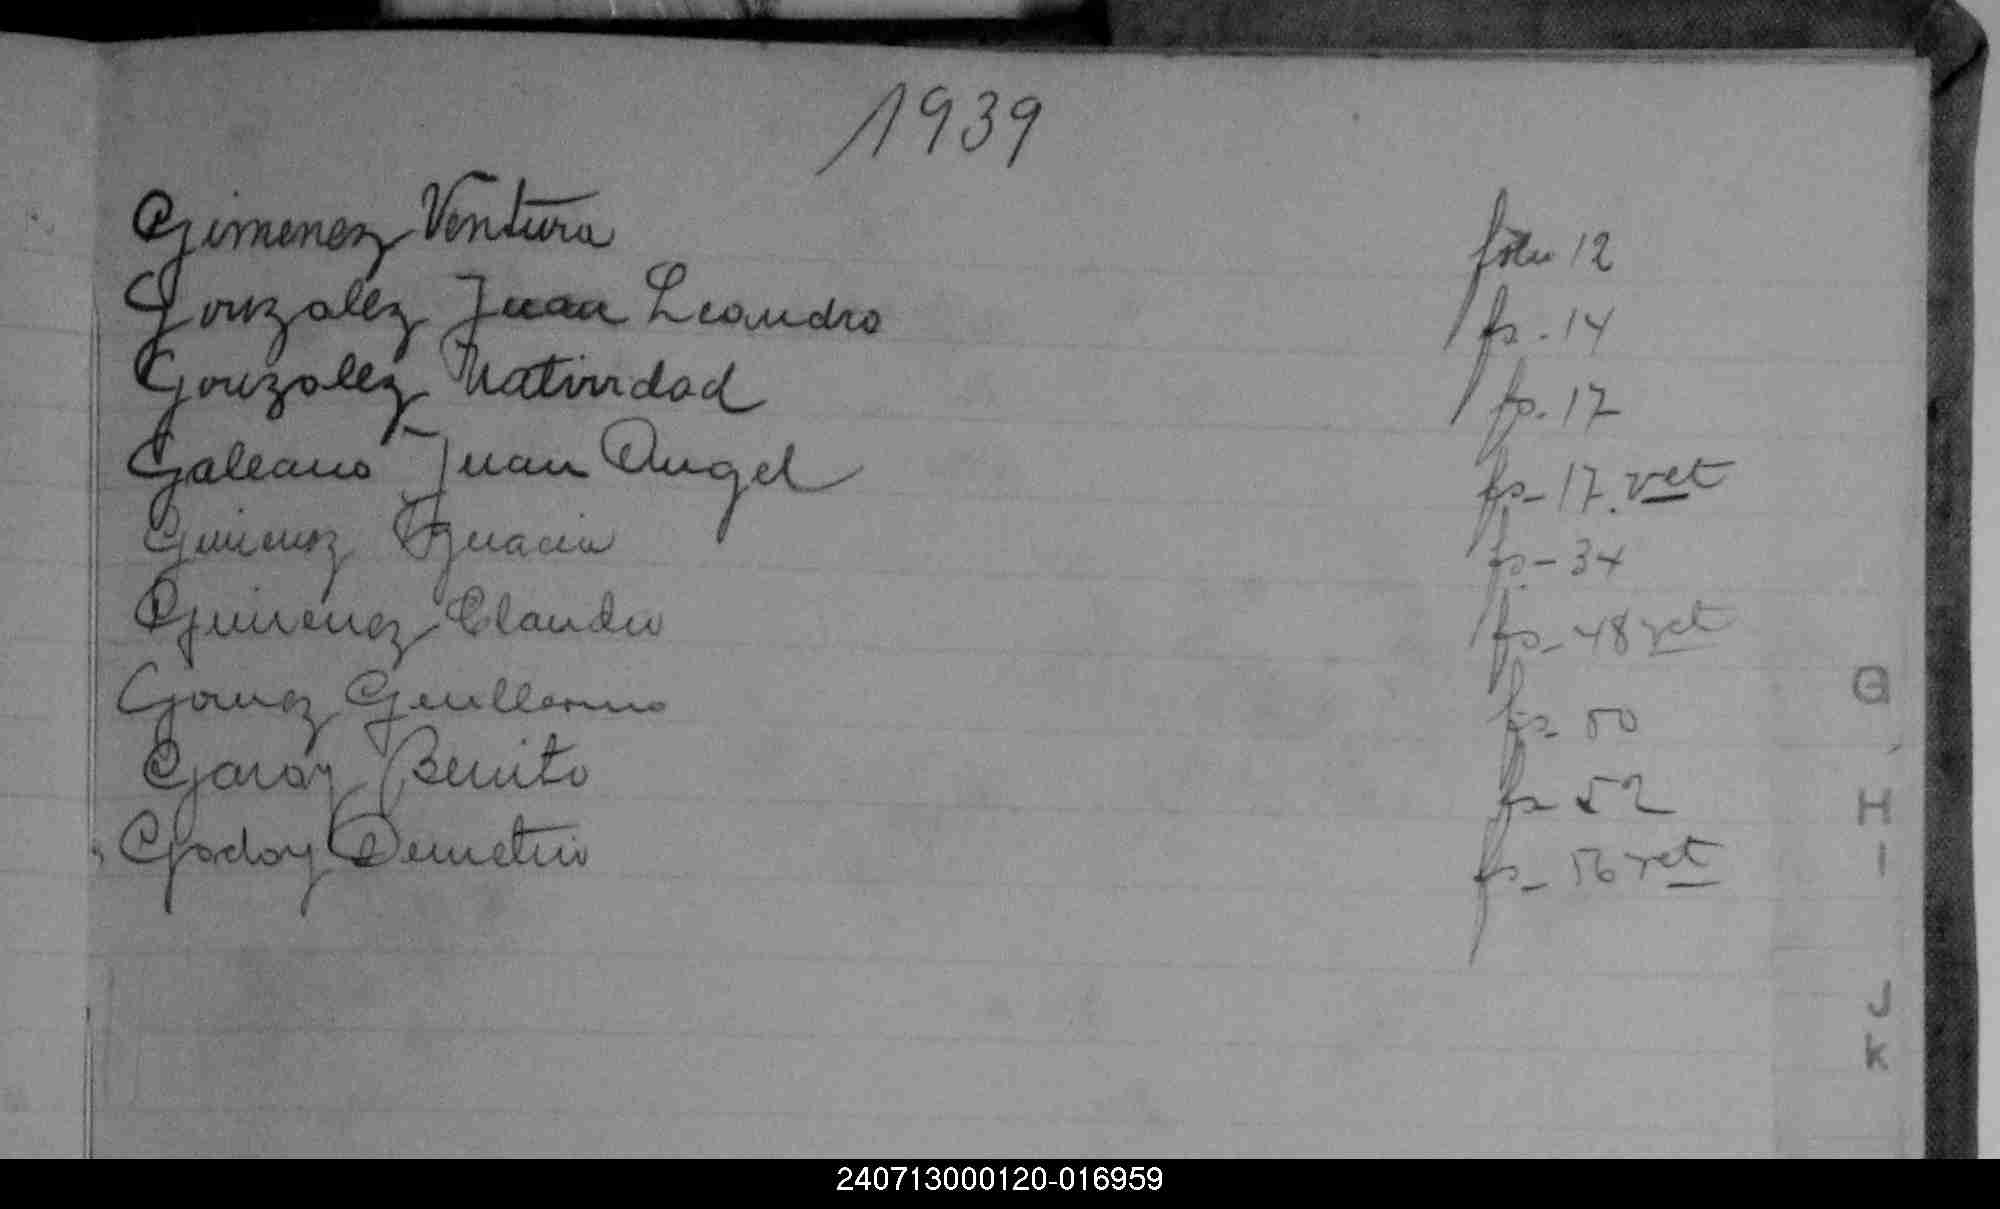 1939
Gimenez Ventura folio 12
Gonzalez Juan Leandro fs. 14
Gonzalez Natividad fs. 17
Galeano Juan Angel fs- 17. vet
Gimenez Ignacio fs- 34
Gimenez Claudio fs- 48 vet
Gomez Guillermo fs- 50
Garay Benito fs- 52
Godoy Demetrio fs- 56 vet
G
H
I
J
K
240713000120-016959